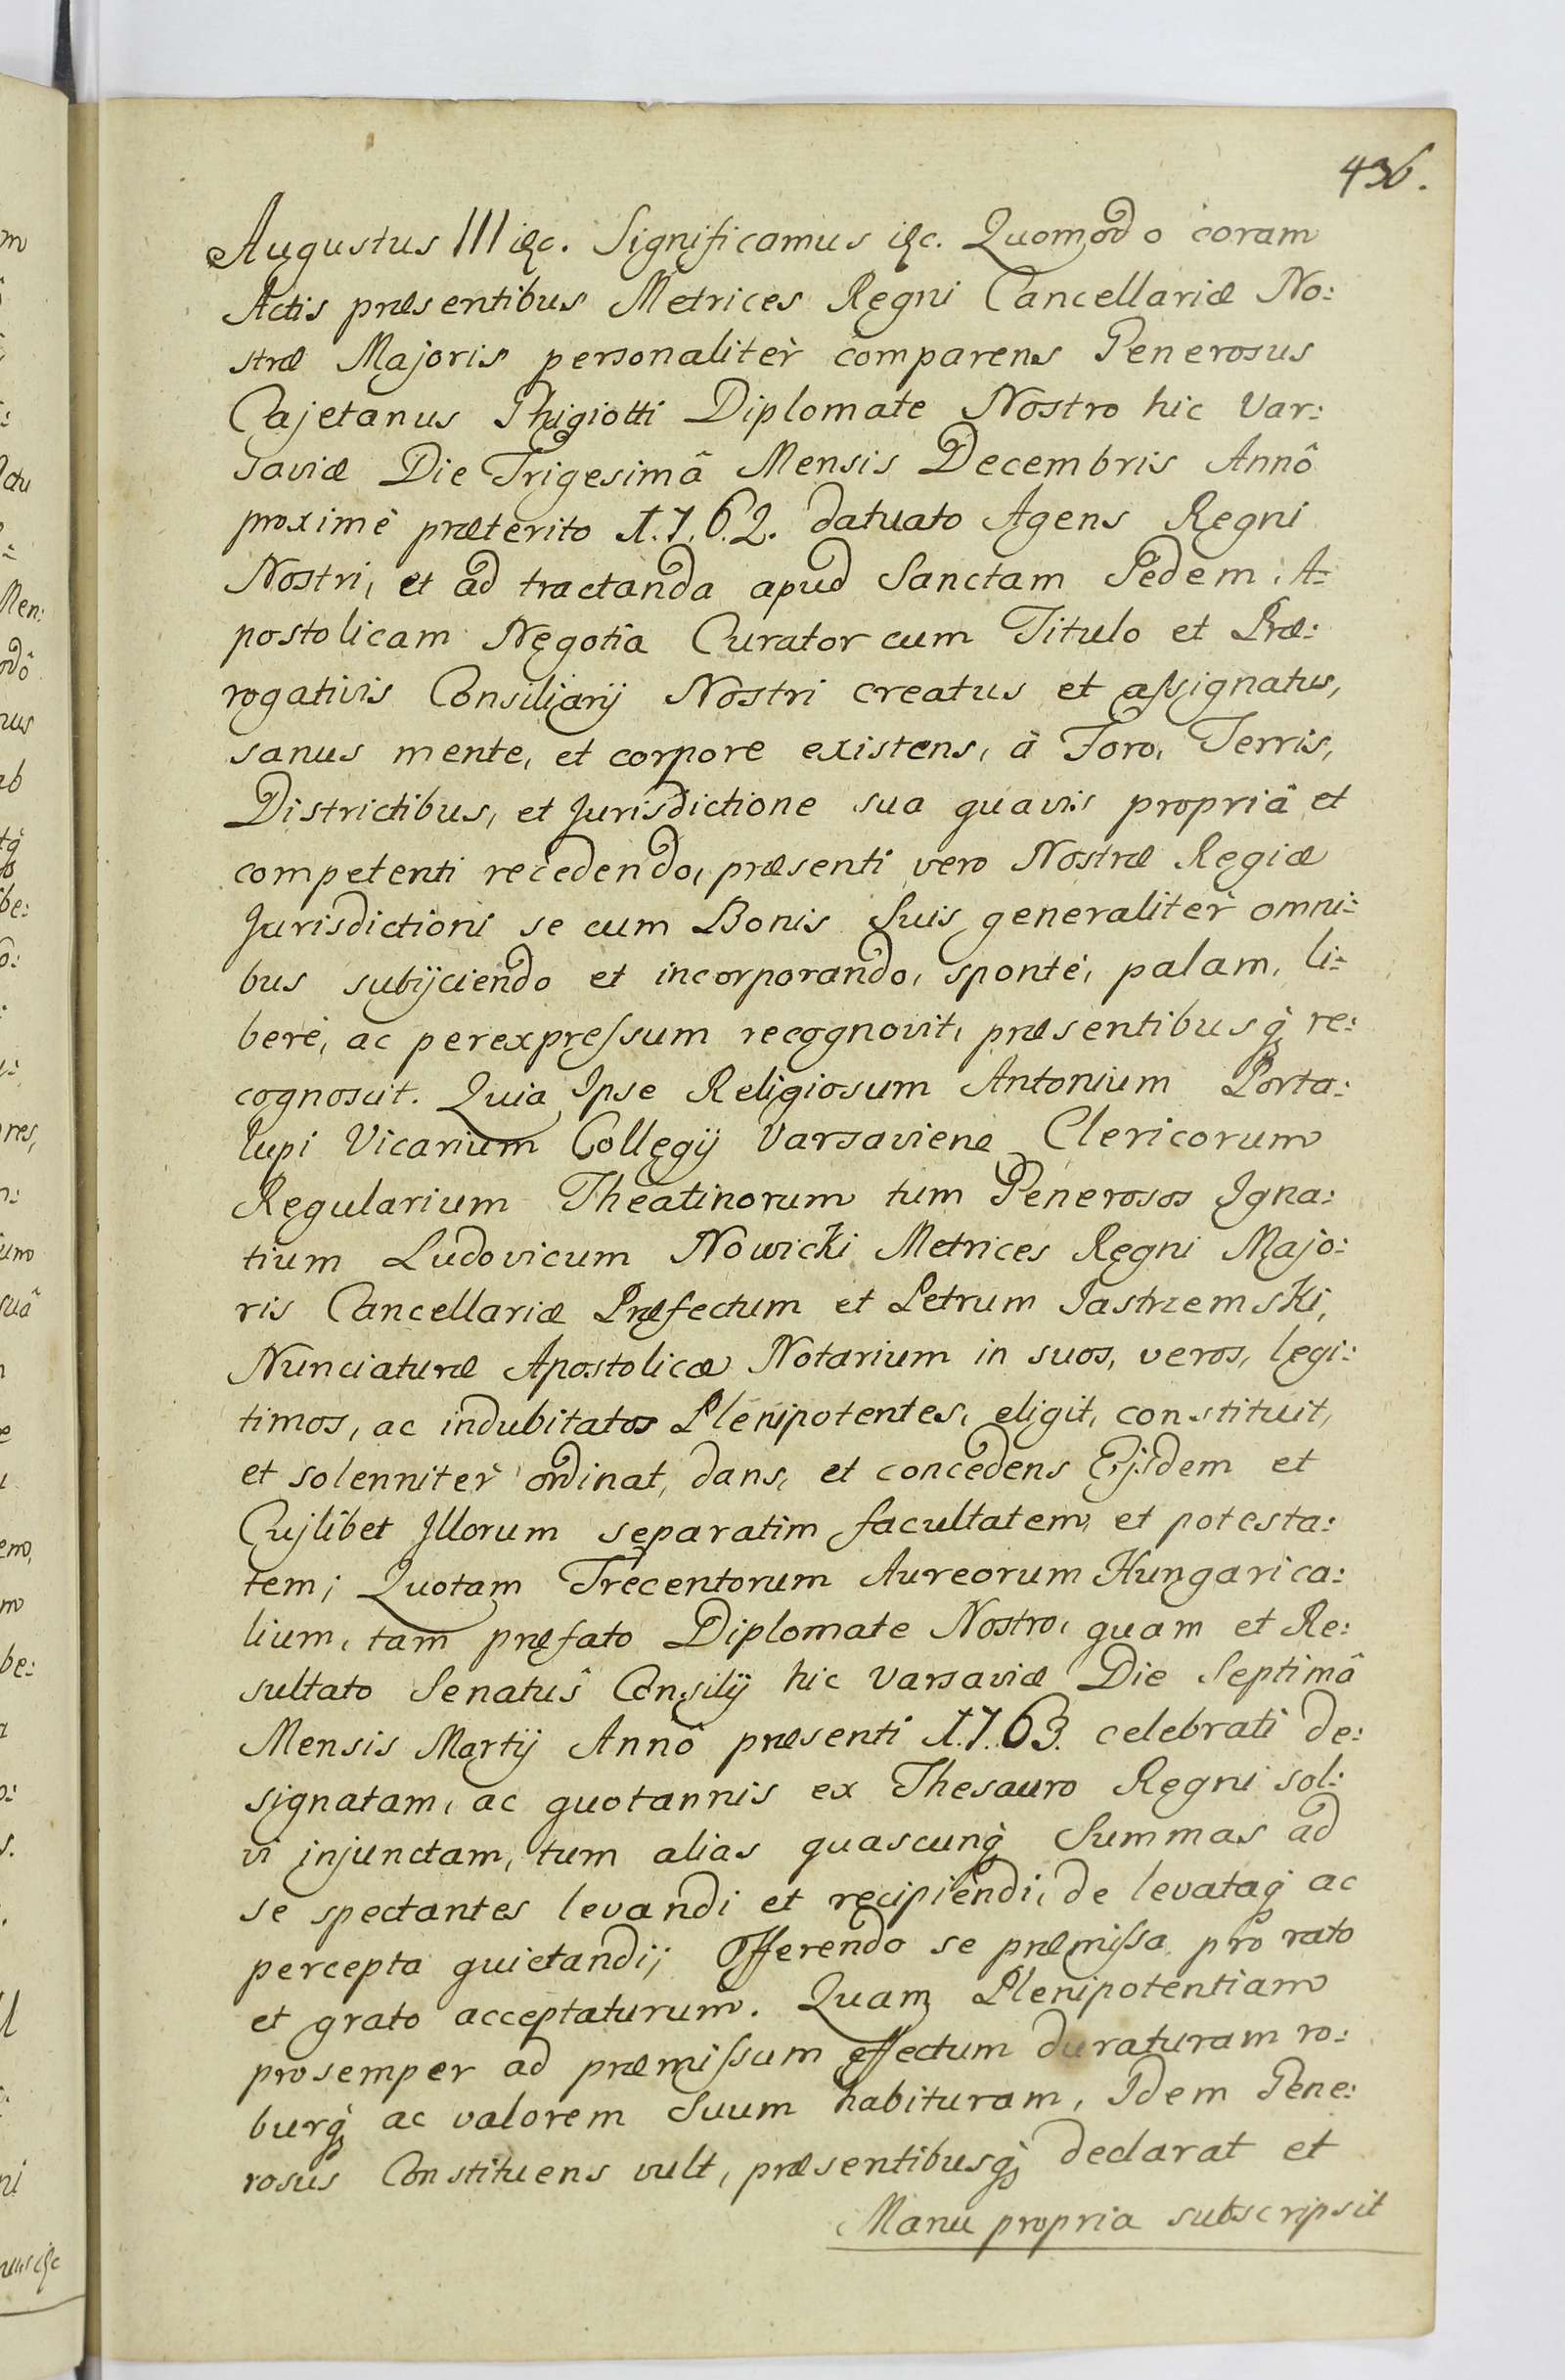 436.
Augustus III &c. Significamus &c. Quomodo coram
Actis præsentibus Metrices Regni Cancellariæ No:
stræ Majoris personalitèr comparens Generosus
Cajetanus Ghigiotti Diplomate Nostro hic Var:
saviæ Die Trigesimâ Mensis Decembris Annô
proximè præterito 1.7.6.2. datuato Agens Regni
Nostri, et ad tractanda apud Sanctam Sedem A:
postolicam Negotia Curator cum Titulo et Præ:
rogativis Consiliarij Nostri creatus et aſsignatus,
sanus mente, et corpore existens, à Foro, Terris,
Districtibus, et Jurisdictione sua quavis propriâ et
competenti recedendo, præsenti vero Nostræ Regiæ
Jurisdictioni se cum Bonis Suis generalitèr omni:
bus subijciendo et incorporando, spontè, palam, li:
berè, ac perexpreſsum recognovit, præsentibusq̀ re:
cognoscit. Quia Ipse Religiosum Antonium Porta:
lupi Vicarium Collegij Varsaviene Clericorum
Regularium Theatinorum tum Generosos Igna:
tium Ludovicum Nowicki Metrices Regni Majo:
ris Cancellariæ Præfectum et Petrum Jastrzemski,
Nunciaturæ Apostolicæ Notarium in suos, veros, legi:
timos, ac indubitatos Plenipotentes, eligit, constituit,
et solennitèr ordinat, dans, et concedens Eijsdem et
Cujlibet Illorum separatim facultatem et potesta:
tem; Quotam Trecentorum Aureorum Hungarica:
lium, tam præfato Diplomate Nostro, quam et Re:
sultato Senatûs Consilij hic Varsaviæ Die Septimâ
Mensis Martij Annô præsenti 1.7.63. celebrati de:
signatam, ac quotannis ex Thesauro Regni sol:
vi injunctam, tum alias quascunq̀ Summas ad
se spectantes levandi et recipiendi, de levataq̀ ac
percepta quietandi; Offerendo se præmiſsa pro rato
et grato acceptaturum. Quam Plenipotentiam
prosemper ad præmiſsum effectum duraturam ro:
burq̀ ac valorem Suum habituram, Idem Gene:
rosus Constituens vult, præsentibusq̀ declarat et
Manu propria subscripsit